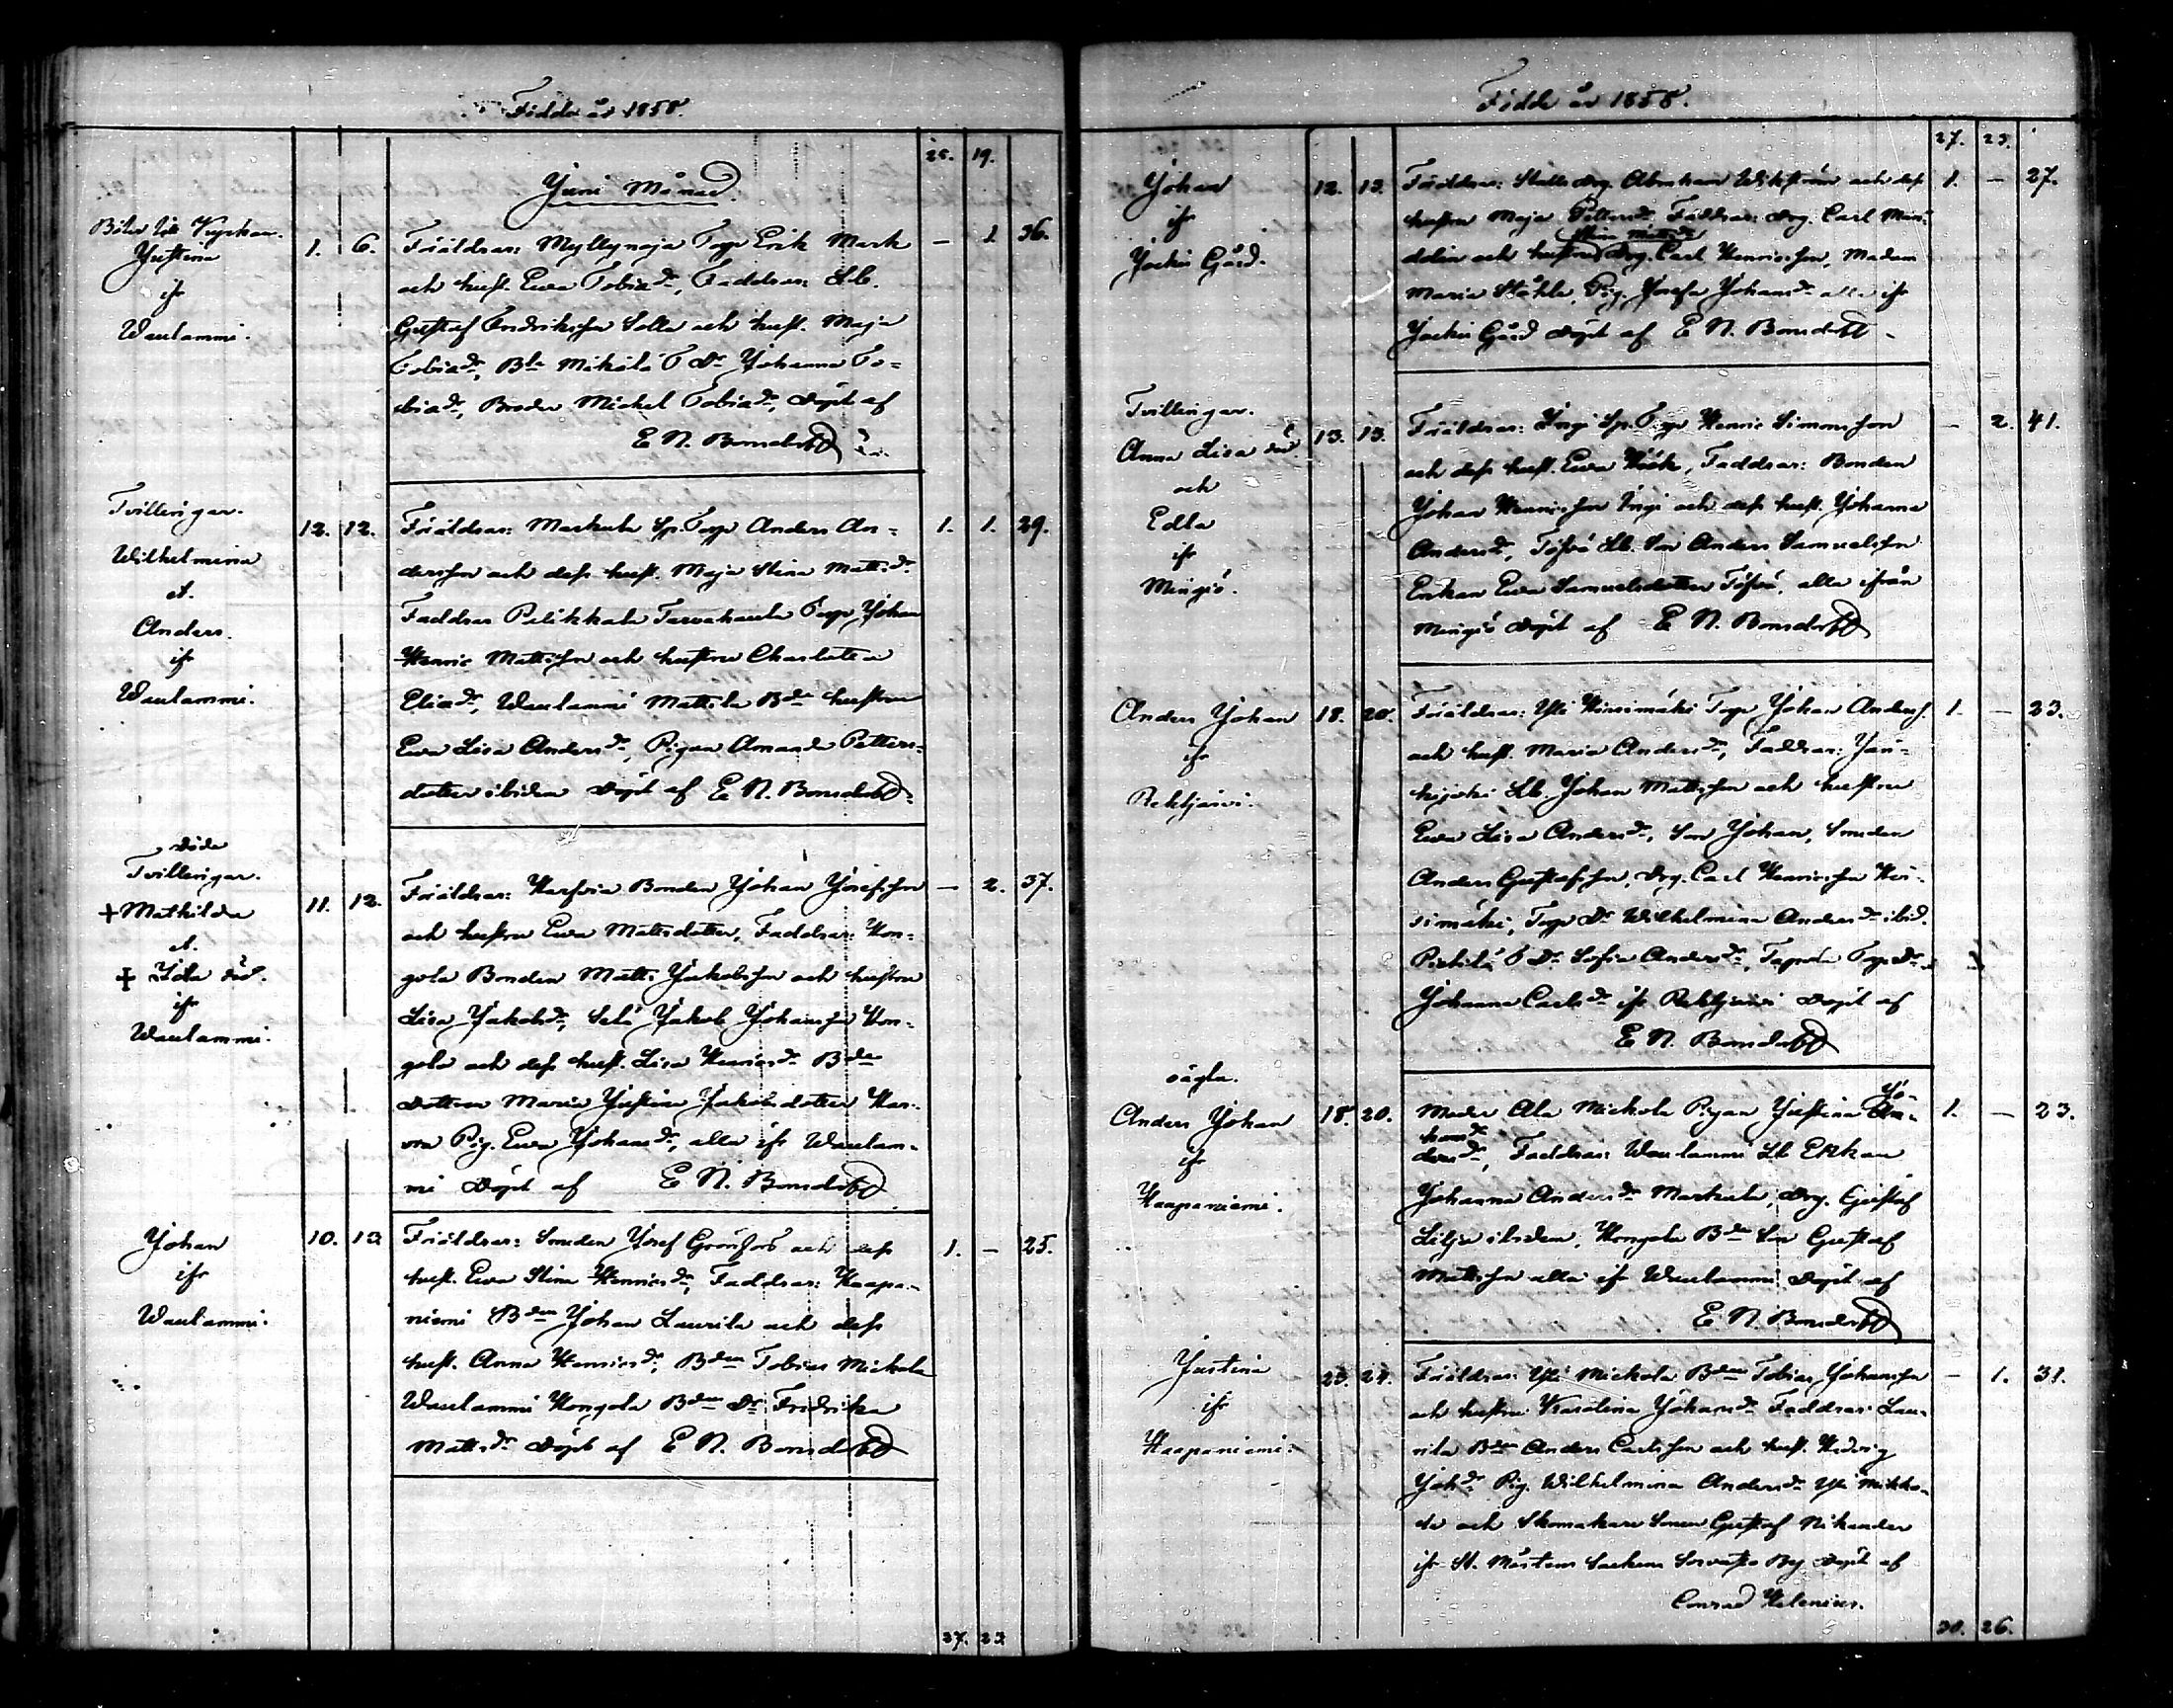 Födde år 1858.
25. 19.
Juni Månad.
Justina
ifr
Waulammi.
1. 6. Föräldrar: Myllynoja Torp Erik Mark — 1. 36.
och hust. Ewa Tobiadr, Faddrar: Lb.
Gustaf Fredriksson Solla och hust. Maja
Tobiadr, Bdn Mikola T Dr Johanna To=
biadr, Broder Michel Tobiadr, Döpt af
E N. Bonsdorff
Tvillingar.
Wilhelmina
et.
Anders.
ifr
Waulammi.
12. 12. Föräldrar: Markula Sp. Torp Anders An= 1. 1. 29.
dersson och dess hust. Maja Stina Mattsdr
Faddrar Pelikkala Tarvahaula Torp Johan
Henric Mattsson och hustru Charlotta
Eliadr, Waulammi Mattila Bdn hustru
Ewa Lisa Andersdr, Pigan Amanda Petters=
dotter ibidem Döpt af E N. Bonsdorff
döda
Tvillingar.
+ Mathilda
et.
+ Ida död.
ifr
Waulammi.
11. 12. Föräldrar: Harfvia Bonden Johan Josefsson — 2. 37.
och hustru Ewa Mattsdotter, Faddrar: Hon=
gola Bonden Matts Jakobsson och hustru
Lisa Jakobsdr, Jakob Johansson Hon=
gola och dess hust. Lisa Henricsdr Bdn
Dottren Maria Justina Jakobsdotter Har=
via Pig. Ewa Johansdr, alla ifr Waulam=
mi Döpt af E N. Bonsdorff
Johan
ifr
Waulammi.
10. 12 Föräldrar: Smeden Josef Grönfors och dess 1. — 25.
hust. Ewa Stina Henricsdr, Faddrar: Haapa=
niemi Bdn Johan Laurila och dess
hust. Anna Henricsdr, Bdn Tobias Mickola
Waulammi Hongola Bdn Dr Fredrika
Mattsdr Döpt af E N. Bonsdorff
27. 23
Födde år 1858.
27. 23.
Johan
ifr
Jockis Gård.
12. 13. Föräldrar: Statt drg. Abraham Wikström och dess 1. — 27.
hustru Maja Pettersdr Faddrar: drg. Carl Man=
Stina Mattsdr
delin och hustru Drg. Carl Henricsson, Madam
Maria Ståhle, Pig. Josefa Johansdr alla ifr
Jockis Gård Döpt af E N. Bonsdorff
Tvillingar.
Anna Lisa död
och
Edla
ifr
Mingiö.
13. 13. Föräldrar: Ingi Sp. Torp Henric Simonsson — 2. 41.
och dess hust. Ewa Höök, Faddrar: Bonden
Johan Henricsson Ingi och dess hust. Johanna
Andersdr, Töfvö Lb. Son Anders Samuelsson
Enkan Ewa Samuelsdotter Töfvö, alla ifrån
Mingiö Döpt af E N. Bonsdorff
Anders Johan
ifr
Rehtjärvi.
18. 20. Föräldrar: Yli Hirsimäki Torp Johan Anderss. 1. — 23.
och hust. Maria Andersdr, Faddrar: Jän=
hijoki Lb. Johan Mattsson och hustru
Ewa Lisa Andersdr, Son Johan, Smeden
Anders Gustafsson, drg. Carl Henricsson Hir=
simäki, Torp Dr Wilhelmina Andersdr ibid.
Pietilä T Dr Sofia Andersdr, Tapola Torp Dr
Johanna Carlsdr ifr Rehtjärvi Döpt af
E N. Bonsdorff
oägta.
Anders Johan
ifr
Haapaniemi.
18. 20. Moder Ala Mickola Pigan Justina Jo= 1. — 23.
hansdr, Faddrar: Waulammi Lb Enkan
Johanna Andersdr Markula, Drg. Gustaf
Lilja ibidem, Hongola Bdn Son Gustaf
Mattsson alla ifr Waulammi Döpt af
E N Bonsdorff
Justina
ifr
Haapaniemi.
23. 24. Föräldrar: Yli Mickola Bdn Tobias Johansson — 1. 31.
och hustru Karolina Johansdr Faddrar: Lau=
rila Bdn Anders Carlsson och hust. Hedvig
Johdr Pig. Wilhelmina Andersdr Yli Mikko=
la och Skomakare Sonen Gustaf Nikander
ifr St. Mårtens Socken By Döpt af
Conrad Helenius.
30. 26.